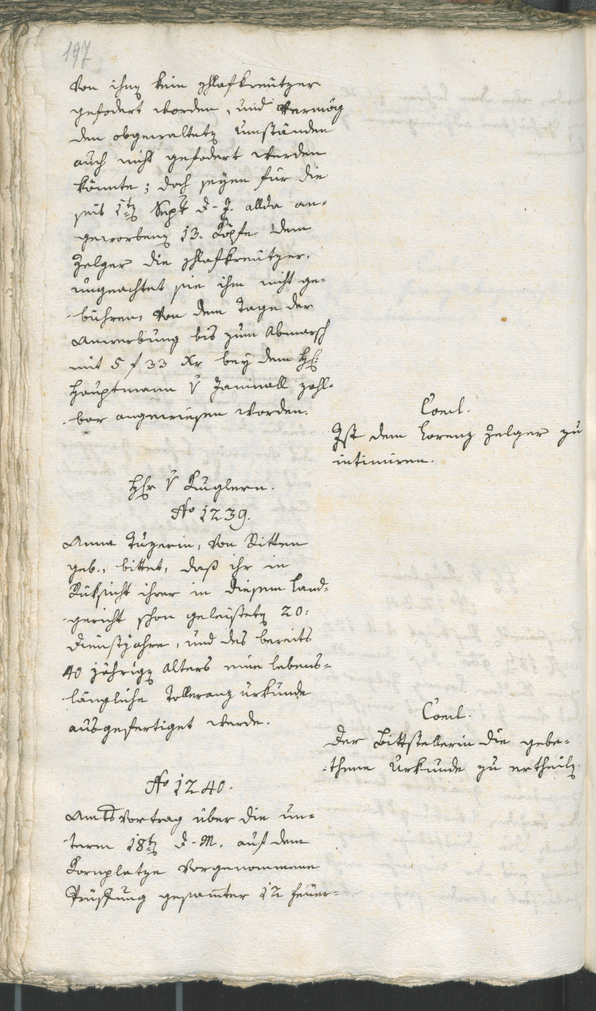 197
von ihm kein Schlafkreutzer
gefodert worden, und vermög
den obgewalteten Umständen
auch nicht gefodert werden
könnte; doch seyen für die
seit 1ten Sept d. J. allda an-
geworbene 13. Köpfe dem
Zelger die Schlafkreutzer,
ungeachtet sie ihm nicht ge-
bühren, von dem Tage der
Anwerbung bis zum Abmarsch
mit 5 f 33 Xr bey dem Hh:
Hauptmann v zahl-
bar angewiesen worden.
Concl.
Ist dem Lorenz Zelger zu
intimiren.
Hhr v Kuglern.
No 1239.
Anna, von Ritten
geb., bittet, daß ihr in
Rüksicht ihrer in diesem Land-
gericht schon geleisteten 20:
Dienstjahre, und des bereits
40 jährigen Alters eine lebens-
längliche Tolleranz Urkunde
ausgefertiget werde.
Concl.
Der Bittstellerin die gebe-
thene Urkunde zu ertheilen.
No 1240.
Amts Vortrag über die un-
term 18ten d. M. auf dem
Kornplatze vorgenommene
Prüfung gesamter 12 Feuer-